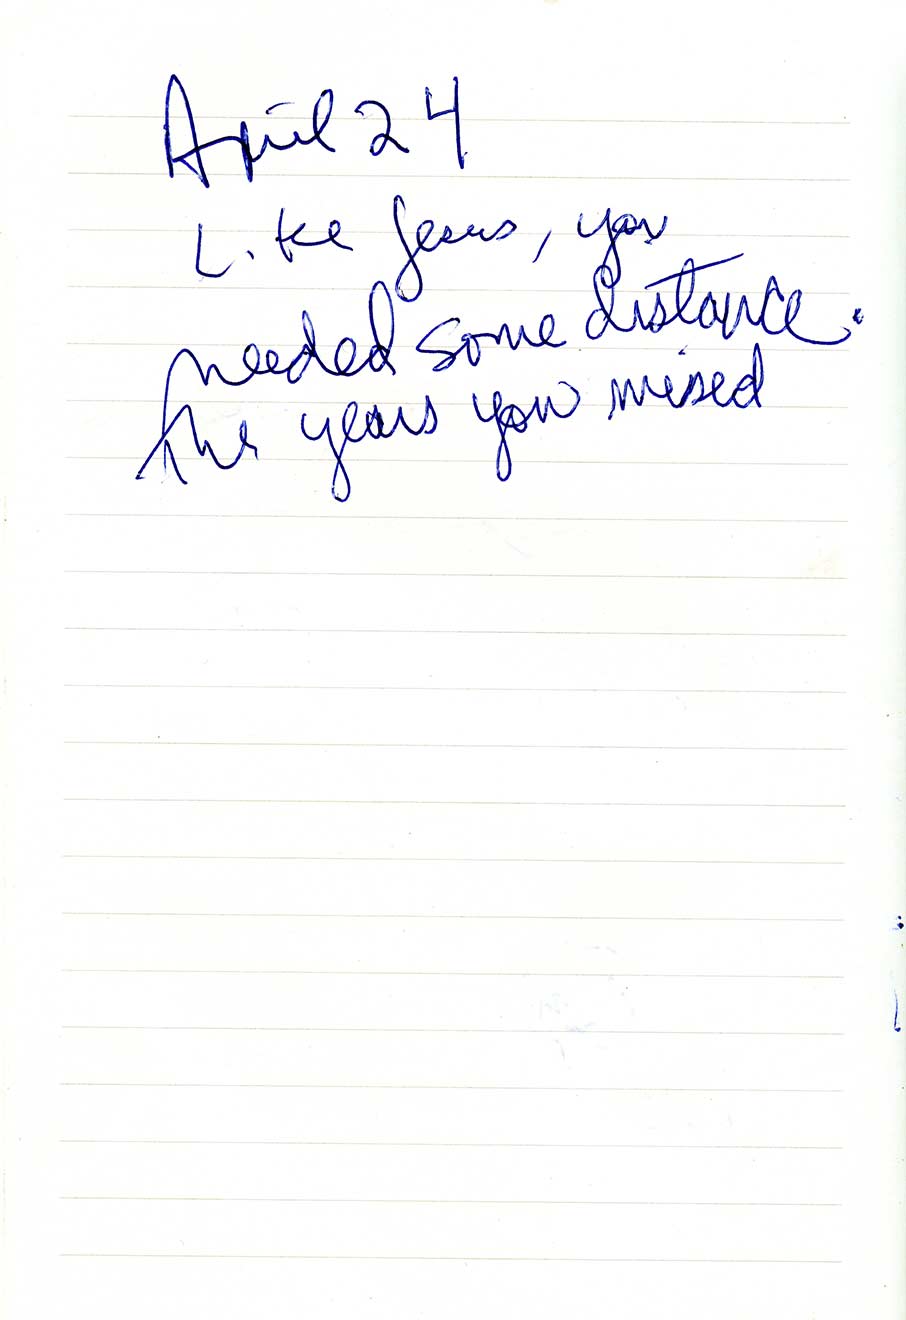 April 24
Like Jesus, you
needed some distance.
The years you missed